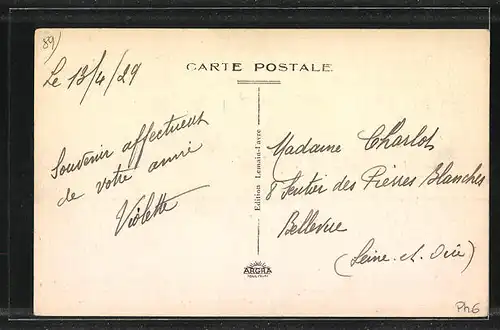 89)
CARTE POSTALE
Le 13/4/29
Souvenir affectueux
de votre amie
Violette
Edition Lemain-Favre
Madame Charlot
8 Sentier des Pierres Blanches
Bellevue
(Seine-et-Oise)
ARGRA
Ph6